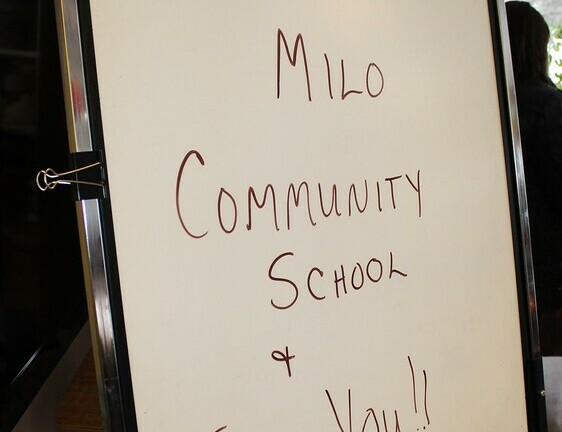 MILO
COMMUNITY
SCHOOL
&
You!!